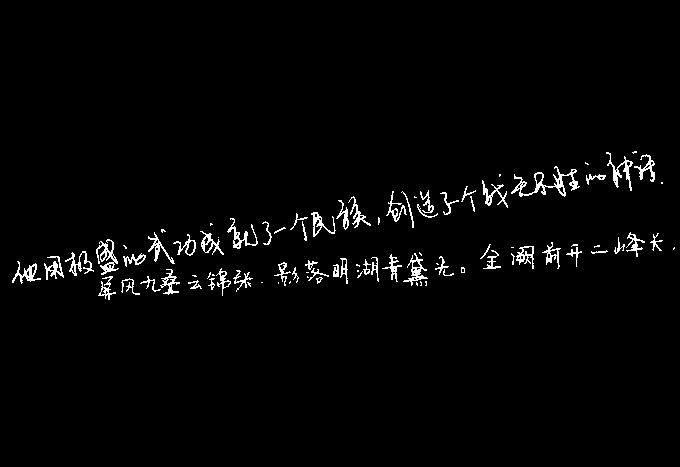 他用极盛的武功成就了一个民族,创造了个战无不胜的神话.
屏风九叠云锦张.影落明湖青黛光。金阙前开二峰长.